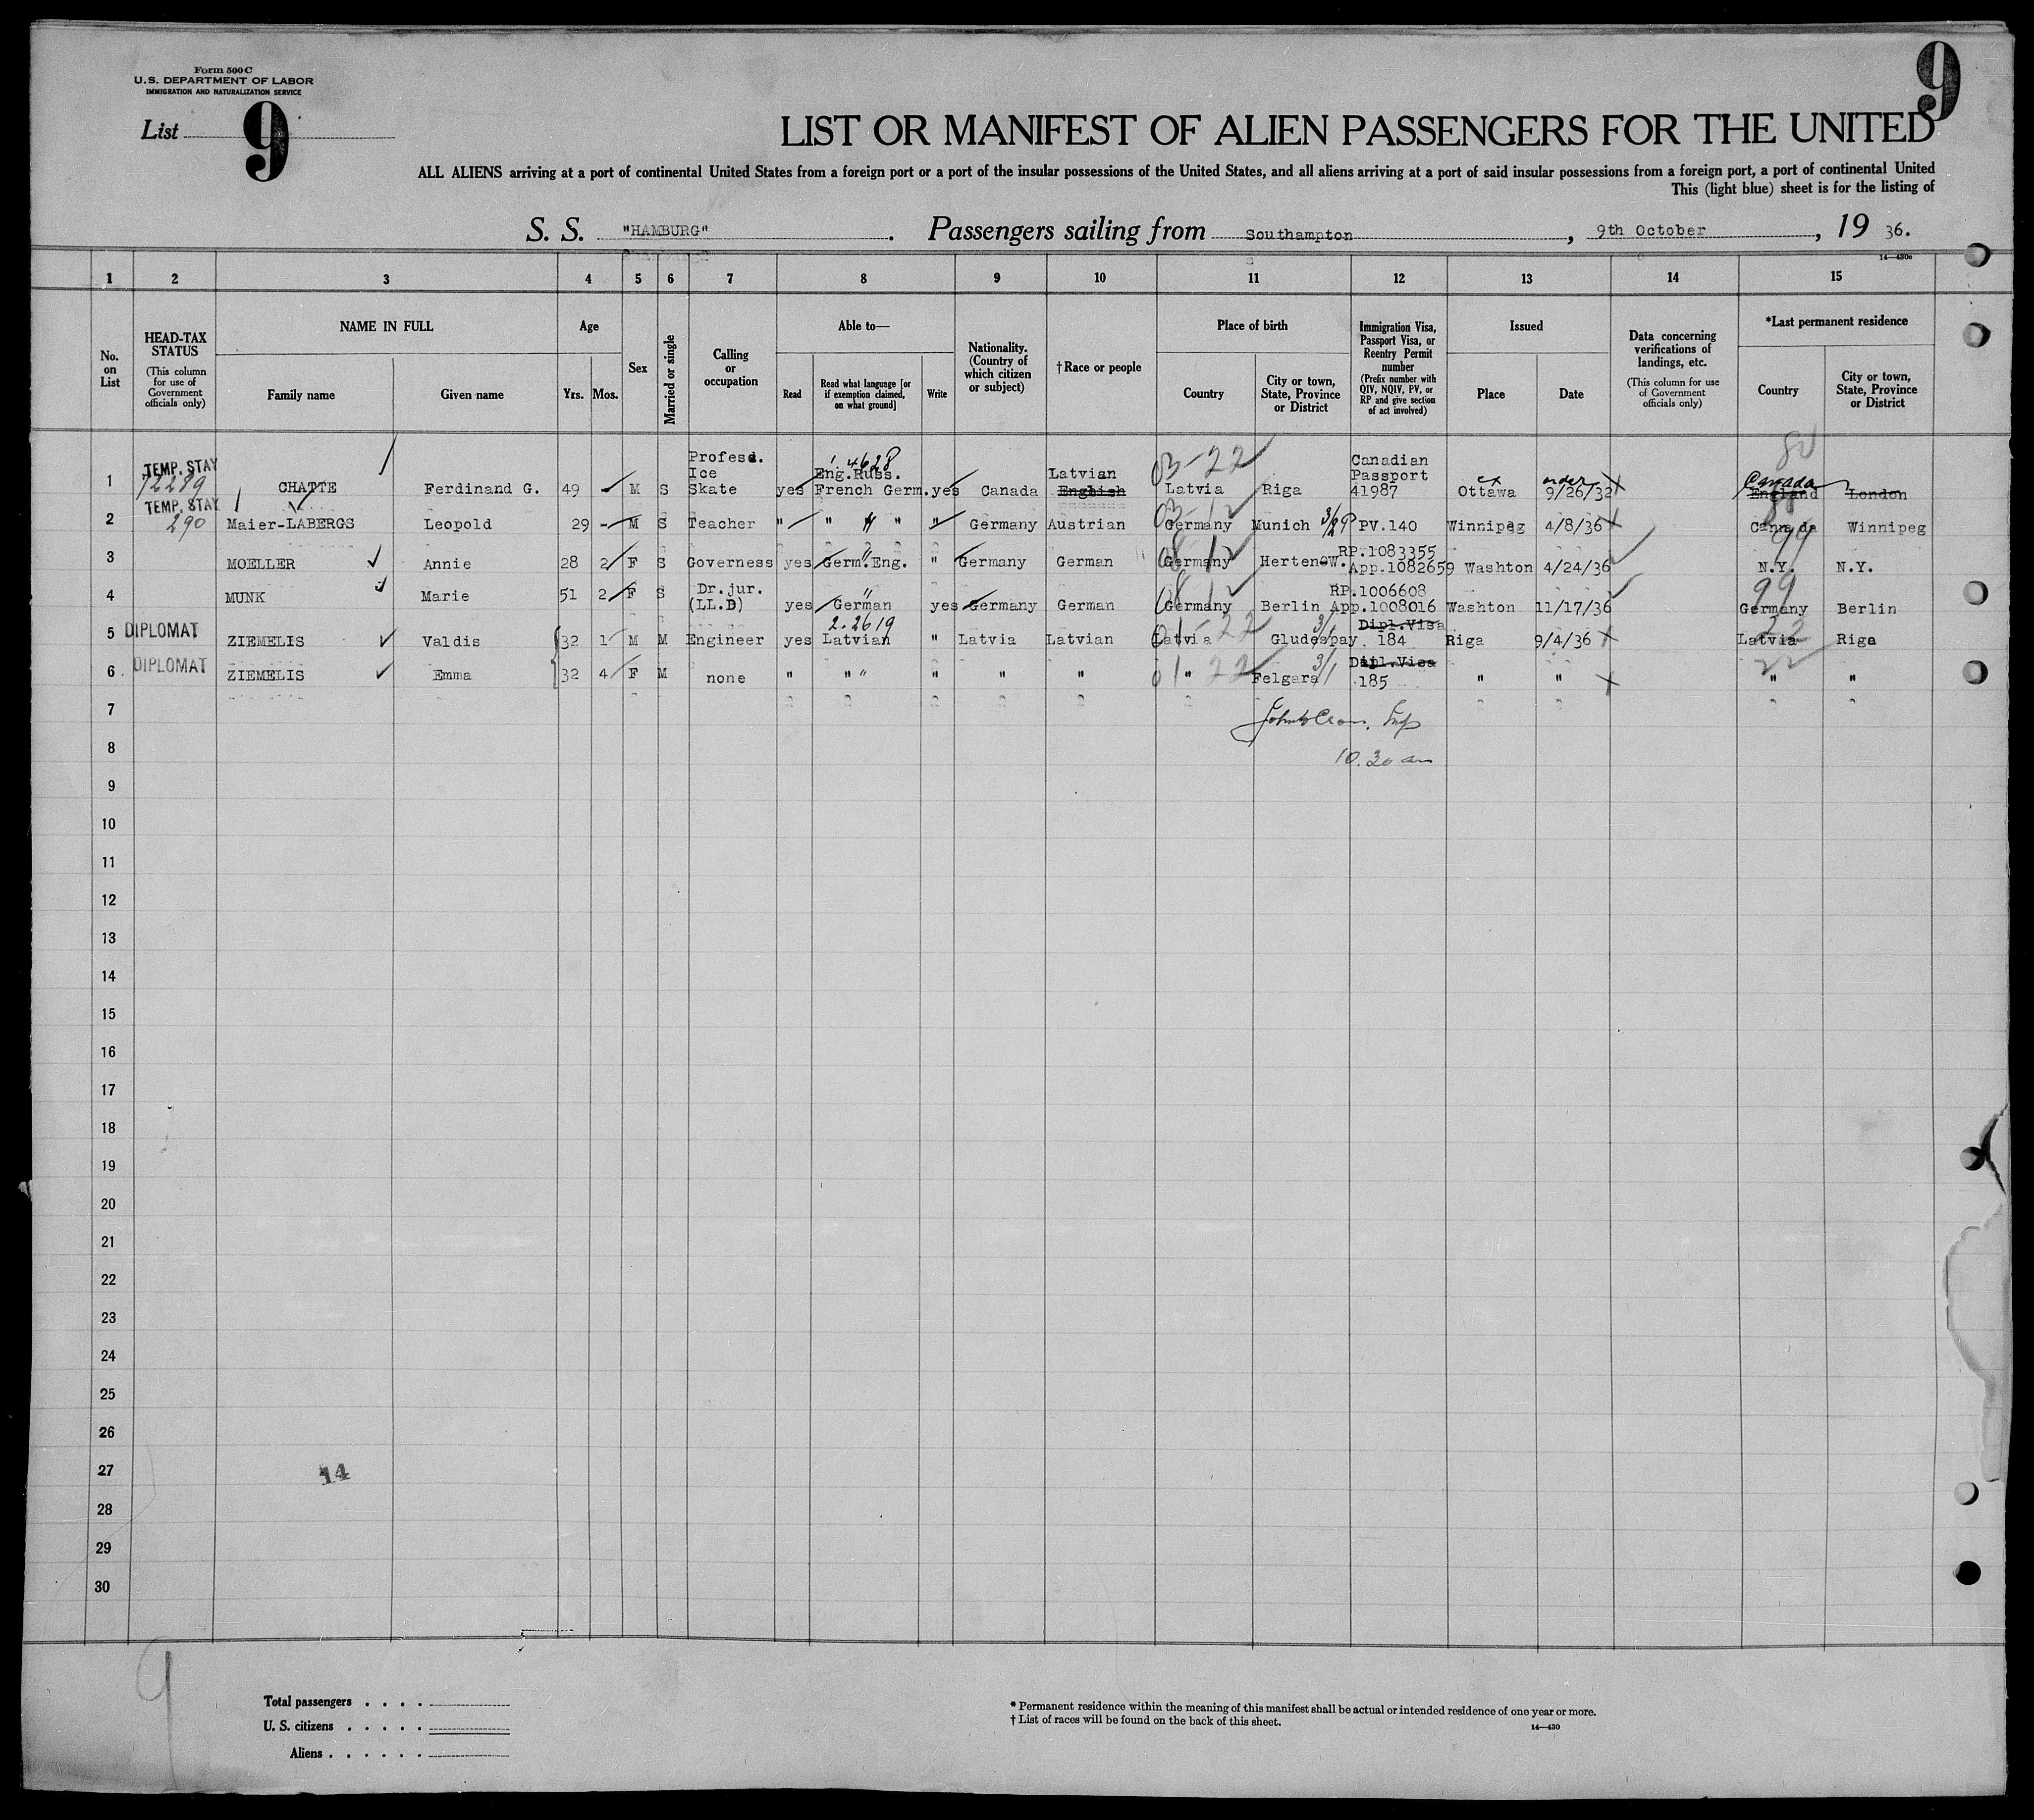 Form 500 C
U.S. DEPARTMENT OF LABOR
IMMIGRATION AND NATURALIZATION SERVICE
List 9
9
LIST OR MANIFEST OF ALIEN PASSENGERS FOR THE UNITED
ALL ALIENS arriving at a port of continental United States from a foreign port or a port of the insular possessions of the United States, and all aliens arriving at a port of said insular possessions from a foreign port, a port of continental United
This (light blue) sheet is for the listing of
S. S. "HAMBURG". Passengers sailing from Southampton, 9th October, 19 36.
14—430c
1 2 3 4 5 6 7 8 9 10 11 12 13 14 15
No. on List
HEAD-TAX STATUS
(This column for use of Government officials only)
NAME IN FULL
Family name
Given name
Age
Yrs. Mos.
Sex
Married or single
Calling or occupation
Able to—
Read
Read what language [or if exemption claimed, on what ground]
Write
Nationality. (Country of which citizen or subject)
† Race or people
Place of birth
Country
City or town, State, Province or District
Immigration Visa, Passport Visa, or Reentry Permit number
(Prefix number with QIV, NQIV, PV, or RP and give section of act involved)
Issued
Place
Date
Data concerning verifications of landings, etc.
(This column for use of Government officials only)
*Last permanent residence
Country
City or town, State, Province or District
1 TEMP. STAY CHATTE Ferdinand G. 49 M S Profesd. Ice Skate yes Eng.Russ. French Germ. yes Canada Latvian English Latvia Riga Canadian Passport 41987 Ottawa 9/26/32 Canada England London
1.4628 03-22
2 TEMP. STAY 290 Maier-LABERGS Leopold 29 - M S Teacher " " " " " Germany Austrian Germany Munich PV.140 Winnipeg 4/8/36 Canada Winnipeg
3 MOELLER Annie 28 2 F S Governess yes Germ. Eng. " Germany German Germany Herten-W. RP.1083355 App.1082659 Washton 4/24/36 N.Y. N.Y.
4 MUNK Marie 51 2 F S Dr.jur. (LL.D) yes German yes Germany German Germany Berlin RP.1006608 App.1008016 Washton 11/17/36 Germany Berlin
99
2.2619
5 DIPLOMAT ZIEMELIS Valdis 32 1 M M Engineer yes Latvian " Latvia Latvian Latvia Gludespay Dipl.Visa 184 Riga 9/4/36 Latvia Riga
6 DIPLOMAT ZIEMELIS Emma 32 4 F M none " " " " " " " Felgara Dipl.Visa 185 " " " "
7
8
10.30 am
9
10
11
12
13
14
15
16
17
18
19
20
21
22
23
24
25
26
27 14
28
29
30
9
Total passengers . . . .
U. S. citizens . . . . .
Aliens . . . . . .
* Permanent residence within the meaning of this manifest shall be actual or intended residence of one year or more.
† List of races will be found on the back of this sheet.
14—430